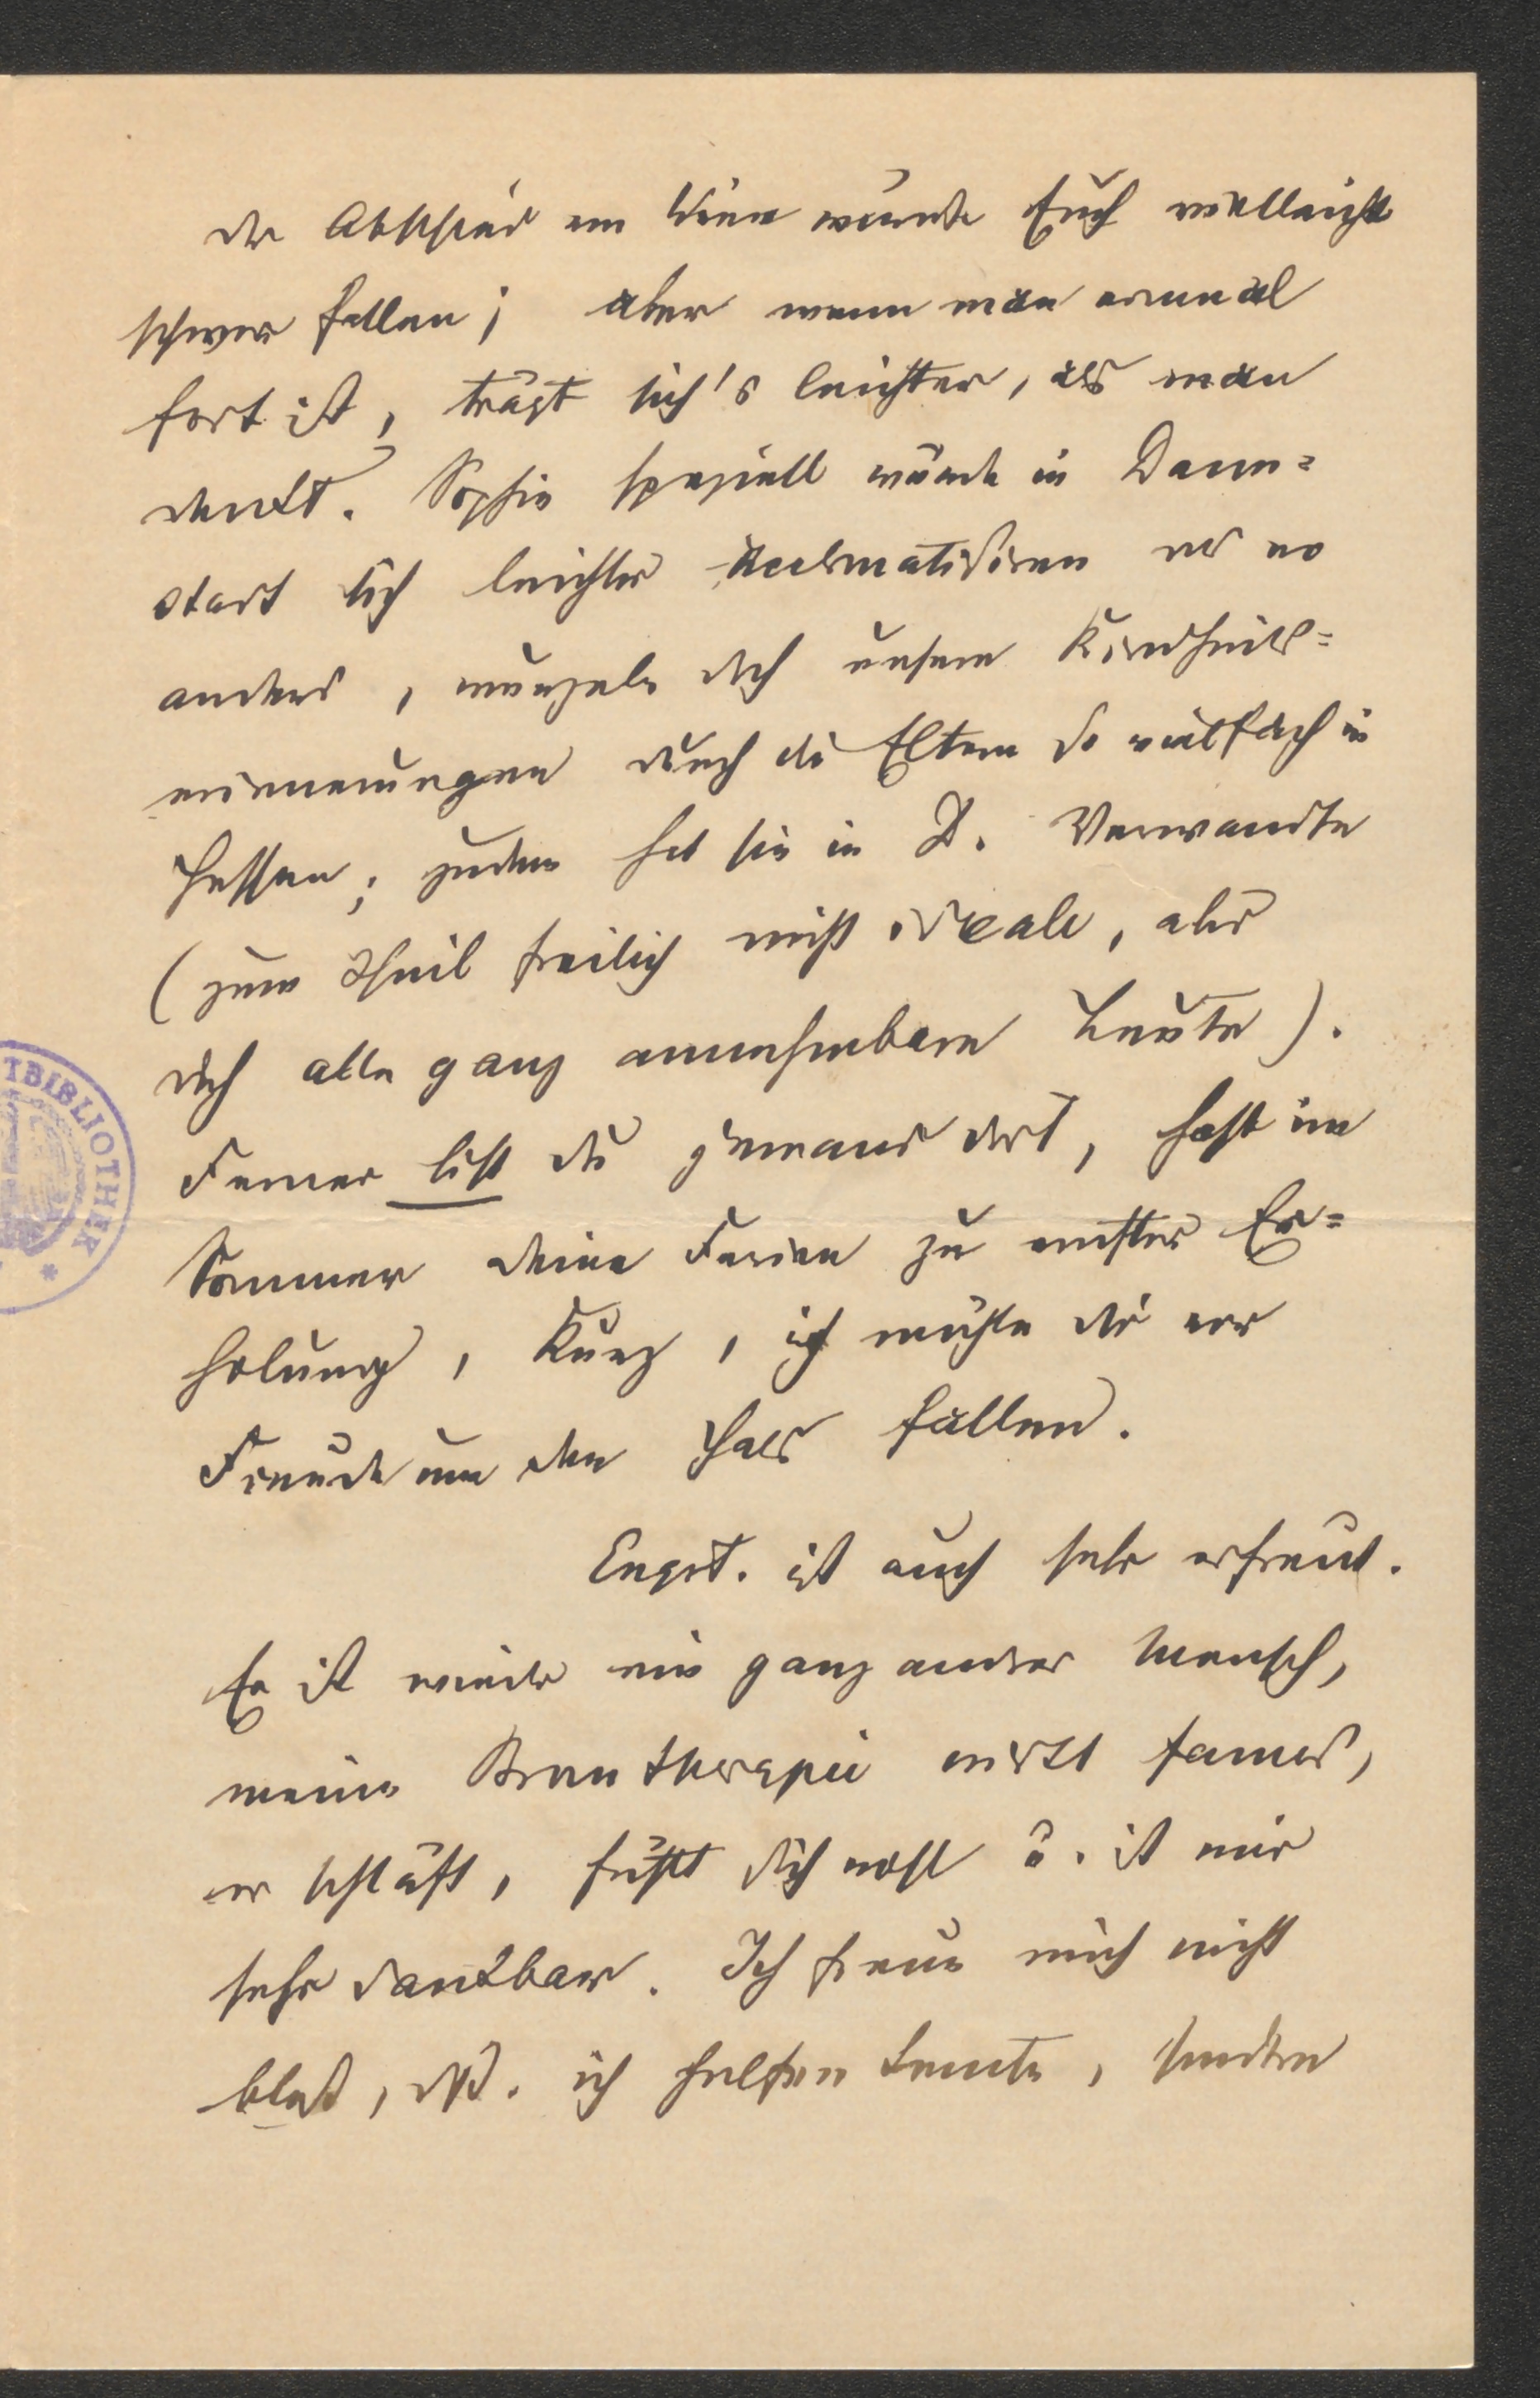 der Abschied von Wien würde Euch vielleicht
schwer fallen; aber wenn man einmal
fort ist, trägt sich's leichter, als man
denkt. Sophie speziell würde in Darm=
stadt sich leichter acclimatisiren als wo
anders, wurzeln doch unsere Kindheits=
erinnerungen durch die Eltern so vielfach in
Hessen; zudem hat sie in D. Verwandte
(zum Theil freilich nicht ideale, aber
doch alle ganz annehmbare Leute).
Ferner bist du jemand dort, hast im
Sommer deine Ferien zu ernster Er=
holung, kurz, ich möchte dir vor
Freude um den Hals fallen.
Engst. ist auch sehr erfreut.
Er ist wieder ein ganz andrer Mensch,
meine Bromtherapie wirkt famos,
er schläft, fühlt sich wohl u. ist mir
sehr dankbar. Ich freue mich nicht
bloß, dß. ich helfen konnte, sondern
TBIBLIOTHEK